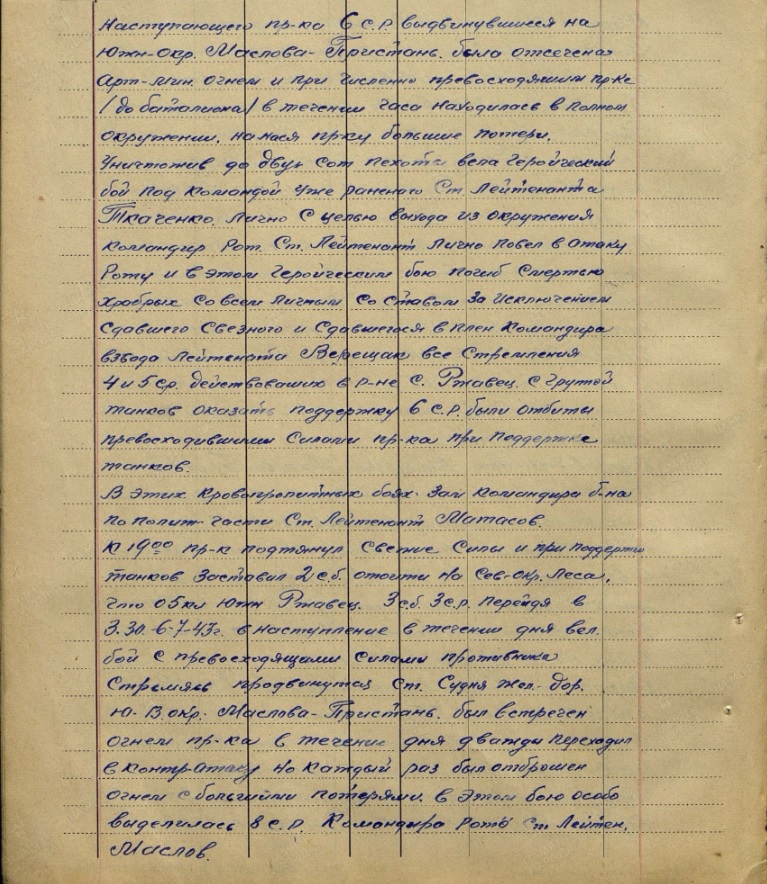 Наступающего пр-ка 6 с.р. выдвинувшиеся на
Южн-окр. Маслова-Пристань. была отсечена
Арт-мин. огнем и при численно превосходящим пр-ке
/до баталиона/ в течении часа находилась в полном
окружении. нанося пр-ку большие потери.
Уничтожив до двух сот пехоты вела геройческий
бой под командой уже раненого Ст. Лейтенанта
Ткаченко. Лично с целью выхода из окружения
командир рот. Ст. Лейтенант лично повел в атаку
Роту и в этом геройческим бою погиб смертью
храбрых со всем личным со ставом за исключением
сдавшего связного и сдавшегося в плен командира
взвода Лейтената Верещак все стремления
4 и 5 ср. действовавших в р-не с. Ржавец. с групой
танков оказать поддержку 6 с.р. были отбиты
превосходившими силами пр-ка при поддержке
танков.
В этих кровопролитных боях. зам командира б-на
по полит-части Ст. Лейтенант Матасов.
К 19⁰⁰ пр-к подтянул свежие силы и при поддержки
танков заставил 2 с.б. отоити на Сев-окр. леса,
что 05км южн Ржавец. 3сб. 3с.р. перейдя в
3.30.-6-7-43г. в наступление в течении дня вел.
бой с превосходящими силами противника
Стремясь продвинутся Ст. Судня жел-дор.
Ю-В.окр. Маслова-Пристань. был встречен
огнем пр-ка в течение дня дважды переходил
в контр-атаку но каждый раз был отброшен
огнем с большими потерями. в этом бою особо
выделилась 8 с.р. Командира роты Ст Лейтен.
Маслов.